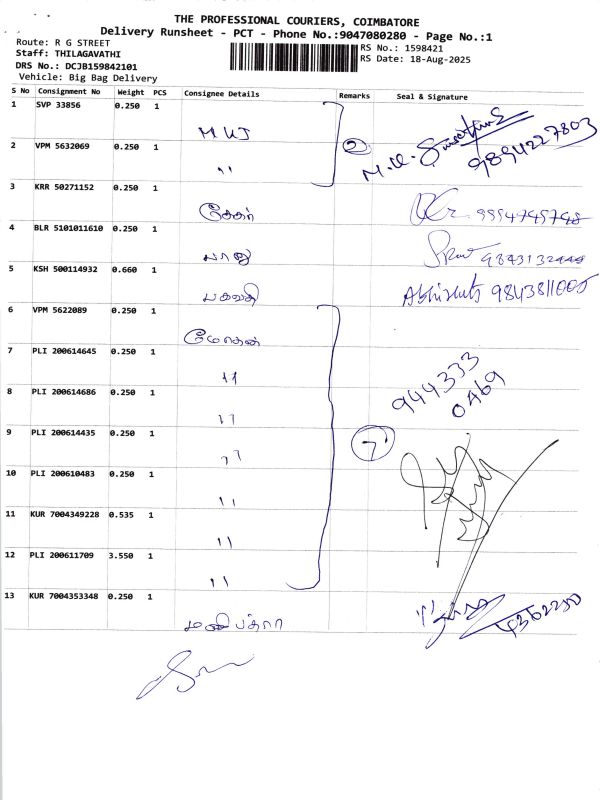 THE PROFESSIONAL COURIERS, COIMBATORE
Delivery Runsheet - PCT - Phone No.:9047080280 - Page No.:1
Route: R G STREET
Staff: THILAGAVATHI
DRS No.: DCJB159842101
Vehicle: Big Bag Delivery
RS No.: 1598421
RS Date: 18-Aug-2025
S No Consignment No Weight PCS Consignee Details Remarks Seal & Signature
1 SVP 33856 0.250 1 MUJ
2 VPM 5632069 0.250 1 " 2 9894227803
3 KRR 50271152 0.250 1 சேகர்
4 BLR 5101011610 0.250 1 பானு
5 KSH 500114932 0.660 1 பகவதி 9843811005
6 VPM 5622089 0.250 1 மோகன்
7 PLI 200614645 0.250 1 "
8 PLI 200614686 0.250 1 " 944333
0469
9 PLI 200614435 0.250 1 " 7
10 PLI 200610483 0.250 1 "
11 KUR 7004349228 0.535 1 "
12 PLI 200611709 3.550 1 "
13 KUR 7004353348 0.250 1